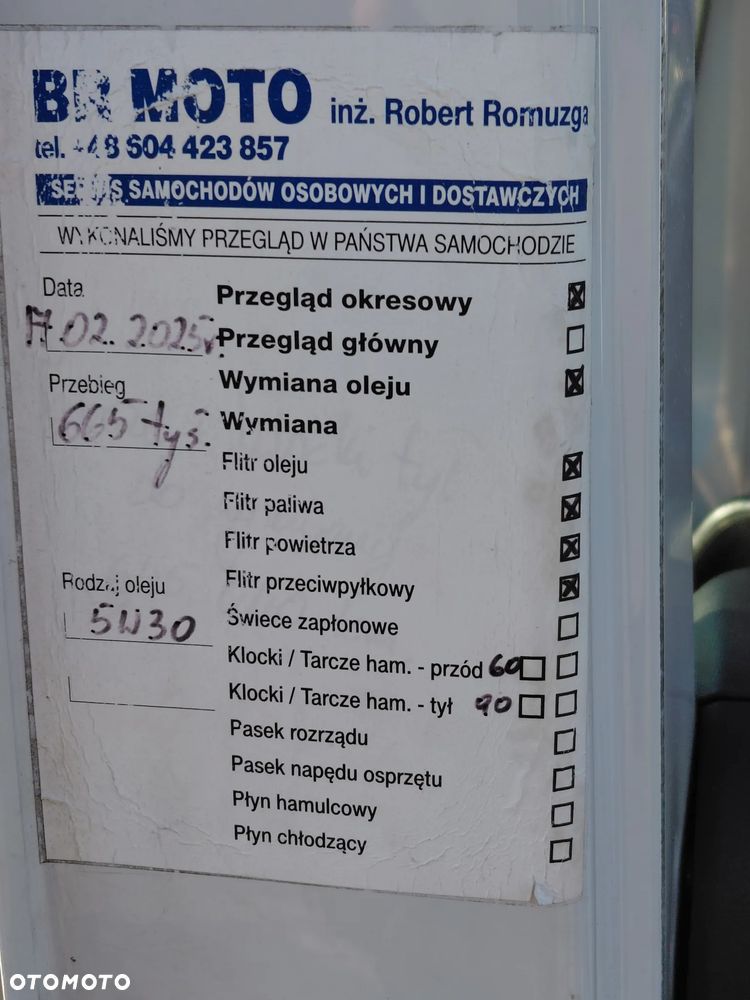 BR MOTO inż. Robert Romuzga
tel. +48 604 423 857
SERWIS SAMOCHODÓW OSOBOWYCH I DOSTAWCZYCH
WYKONALIŚMY PRZEGLĄD W PAŃSTWA SAMOCHODZIE
Data
17.02.2025r.
Przebieg
665 tyś.
Rodzaj oleju
5W30
Przegląd okresowy
Przegląd główny
Wymiana oleju
Wymiana
Flitr oleju
Flitr paliwa
Flitr powietrza
Flitr przeciwpyłkowy
Świece zapłonowe
Klocki / Tarcze ham. - przód 60
Klocki / Tarcze ham. - tył 90
Pasek rozrządu
Pasek napędu osprzętu
Płyn hamulcowy
Płyn chłodzący
OTOMOTO